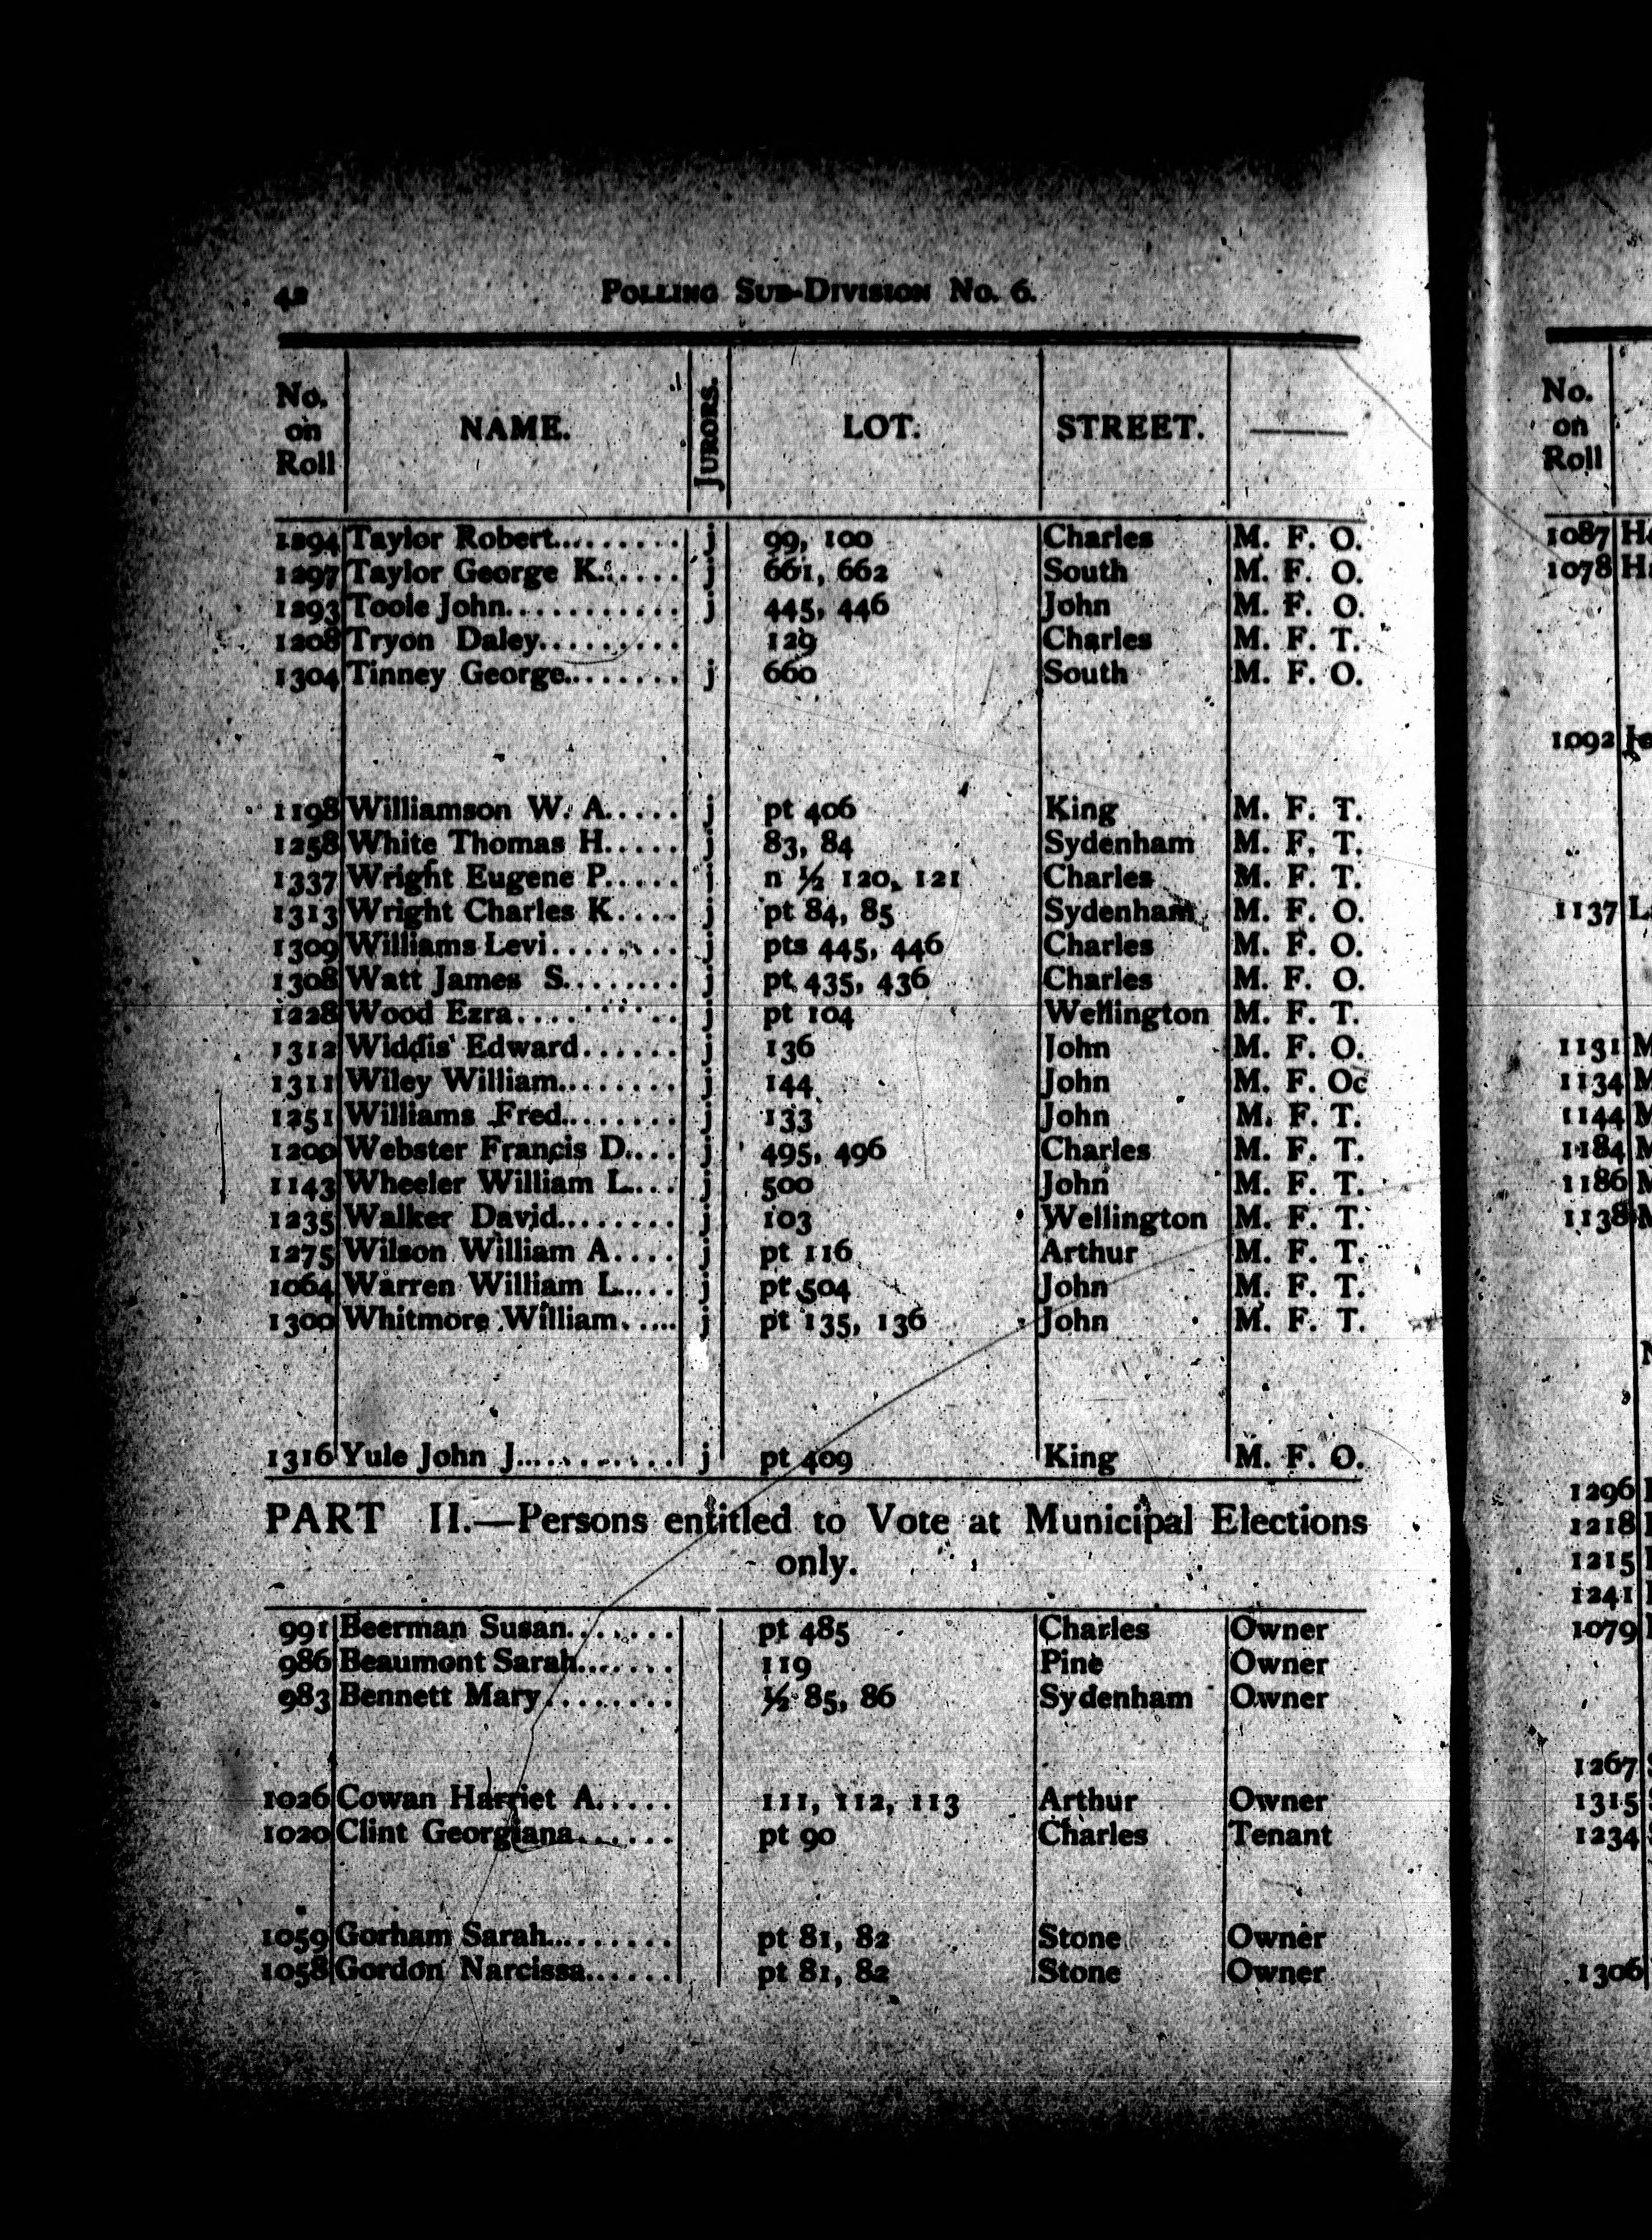 42 POLLING SUB-DIVISION No. 6.
No. on Roll NAME. JURORS. LOT. STREET.
1294 Taylor Robert......... j 99, 100 Charles M. F. O.
1297 Taylor George K...... j 661, 662 South M. F. O.
1293 Toole John........... j 445, 446 John M. F. O.
1208 Tryon Daley......... 129 Charles M. F. T.
1304 Tinney George........ j 660 South M. F. O.
1198 Williamson W. A..... j pt 406 King M. F. T.
1258 White Thomas H..... j 83, 84 Sydenham M. F. T.
1337 Wright Eugene P..... j n ½ 120, 121 Charles M. F. T.
1313 Wright Charles K.... j pt 84, 85 Sydenham M. F. O.
1309 Williams Levi........ j pts 445, 446 Charles M. F. O.
1308 Watt James S........ j pt 435, 436 Charles M. F. O.
1228 Wood Ezra.......... j pt 104 Wellington M. F. T.
1312 Widdis Edward...... j 136 John M. F. O.
1311 Wiley William........ j 144 John M. F. Oc
1251 Williams Fred........ j 133 John M. F. T.
1200 Webster Francis D.... j 495, 496 Charles M. F. T.
1143 Wheeler William L.... j 500 John M. F. T.
1235 Walker David........ j 103 Wellington M. F. T.
1275 Wilson William A.... j pt 116 Arthur M. F. T.
1064 Warren William L..... j pt 504 John M. F. T.
1300 Whitmore William..... j pt 135, 136 John M. F. T.
1316 Yule John J........... j pt 409 King M. F. O.
PART II.—Persons entitled to Vote at Municipal Elections
only.
991 Beerman Susan....... pt 485 Charles Owner
986 Beaumont Sarah....... 119 Pine Owner
983 Bennett Mary........ ½ 85, 86 Sydenham Owner
1026 Cowan Harriet A..... 111, 112, 113 Arthur Owner
1020 Clint Georgiana...... pt 90 Charles Tenant
1059 Gorham Sarah........ pt 81, 82 Stone Owner
1058 Gordon Narcissa...... pt 81, 82 Stone Owner
No.
on
Roll
1087
1078
1092
1137
1131 M
1134 M
1144 M
1184 M
1186 M
1138 M
1296
1218
1215
1241
1079
1267
1315
1234
1306